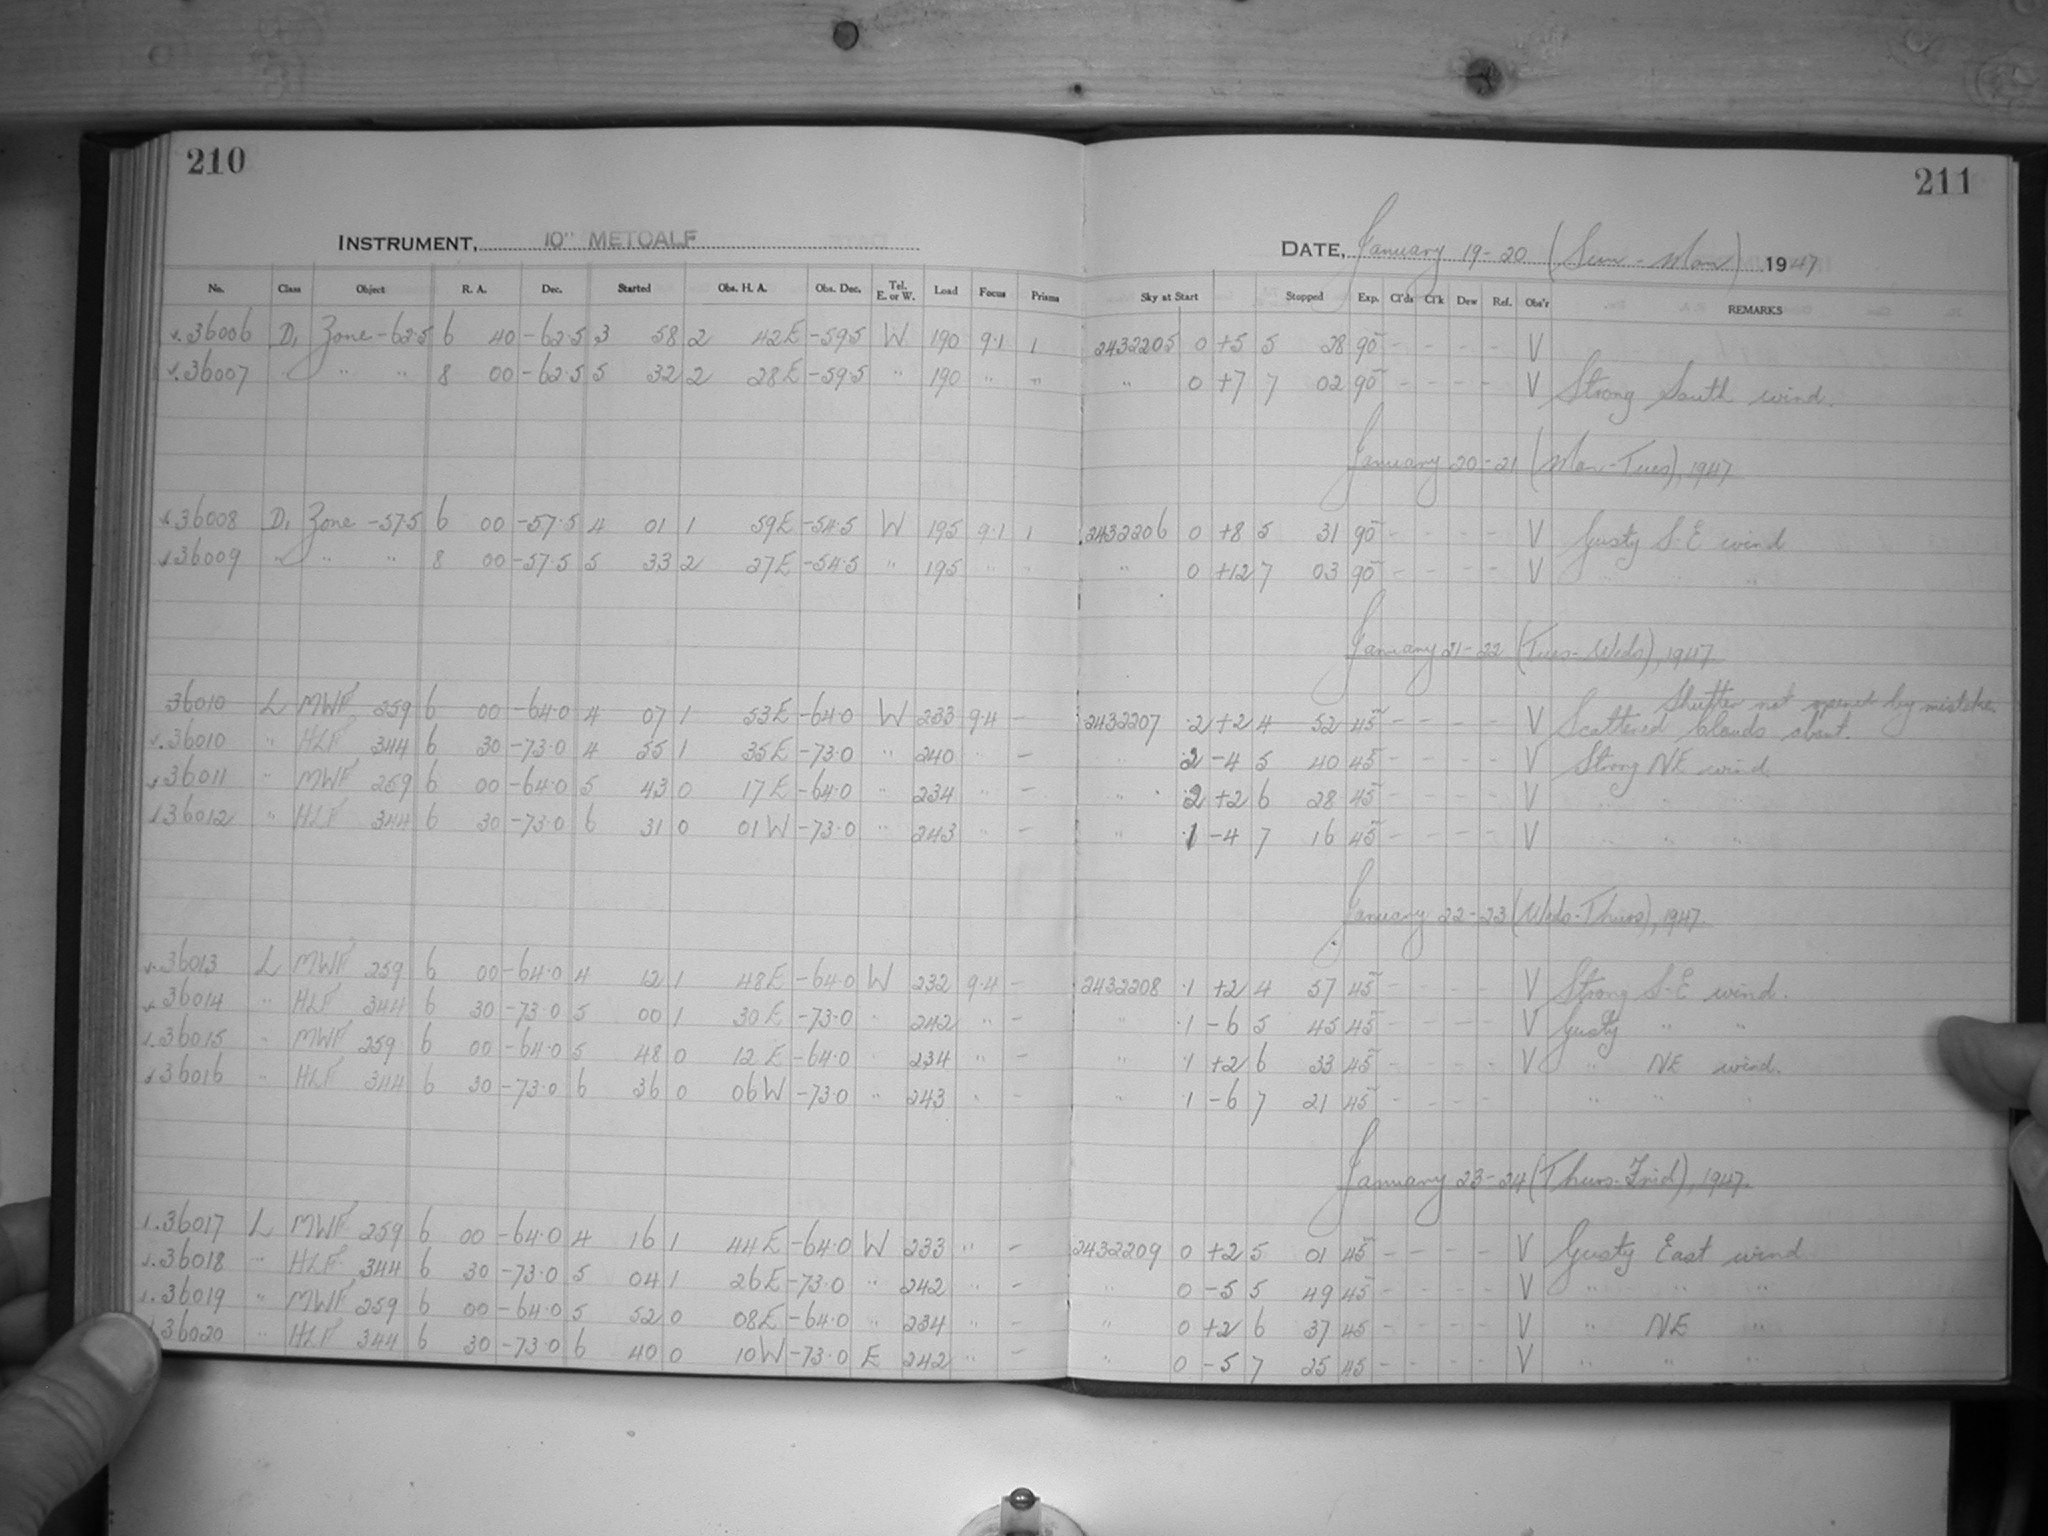 210
211
INSTRUMENT, 10" METCALF
DATE, January 19-20 (Sun-Mon) 1947
No. Class Object R. A. Dec. Started Obs. H. A. Obs. Dec. Tel. E. or W. Load Focus Prisms Sky at Start Stopped Exp. Cl'ds Cl'k Dew Ref. Obs'r REMARKS
36006 D, Zone -62.5 6 40 -62.5 3 58 2 42E -59.5 W 190 9.1 1 2432205 0 +5 5 28 90 - - - - V
36007 " " " 8 00 -62.5 5 32 2 28E -59.5 " 190 " " " 0 +7 7 02 90 - - - - V Strong South wind.
January 20-21 (Mon-Tues), 1947
36008 D, Zone -57.5 6 00 -57.5 4 01 1 59E -54.5 W 195 9.1 1 2432206 0 +8 5 31 90 - - - - V Gusty S-E wind
36009 " " " 8 00 -57.5 5 33 2 27E -54.5 " 195 " " " 0 +12 7 03 90 - - - - V " " "
January 21-22 (Tues-Weds), 1947
Shutter not opened by mistake.
36010 L MWF 259 6 00 -64.0 4 07 1 53E -64.0 W 233 9.4 - 2432207 .2 +2 4 52 45 - - - - V Scattered clouds about.
36010 " HLF 344 6 30 -73.0 4 55 1 35E -73.0 " 240 " - " 2 -4 5 40 45 - - - - V Strong NE wind
36011 " MWF 259 6 00 -64.0 5 43 0 17E -64.0 " 234 " - " .2 +2 6 28 45 - - - - V " " "
36012 " HLF 344 6 30 -73.0 6 31 0 01W -73.0 " 243 " - " .1 -4 7 16 45 - - - - V " " "
January 22-23 (Weds-Thurs), 1947.
36013 L MWF 259 6 00 -64.0 4 12 1 48E -64.0 W 232 9.4 - 2432208 .1 +2 4 57 45 - - - - V Strong S-E wind.
36014 " HLF 344 6 30 -73.0 5 00 1 30E -73.0 " 242 " - " .1 -6 5 45 45 - - - - V Gusty " "
36015 " MWF 259 6 00 -64.0 5 48 0 12E -64.0 " 234 " - " .1 +2 6 33 45 - - - - V " NE wind.
36016 " HLF 344 6 30 -73.0 6 36 0 06W -73.0 " 243 " - " .1 -6 7 21 45 - - - - " " "
January 23-24 (Thurs-Frid), 1947.
36017 L MWF 259 6 00 -64.0 4 16 1 44E -64.0 W 233 " - 2432209 0 +2 5 01 45 - - - - V Gusty East wind
36018 " HLF 344 6 30 -73.0 5 04 1 26E -73.0 " 242 " - " 0 -5 5 49 45 - - - - V " " "
36019 " MWF 259 6 00 -64.0 5 52 0 08E -64.0 " 234 " - " 0 +2 6 37 45 - - - - V " NE "
36020 " HLF 344 6 30 -73.0 6 40 0 10W -73.0 E 242 " - " 0 -5 7 25 45 - - - - V " " "